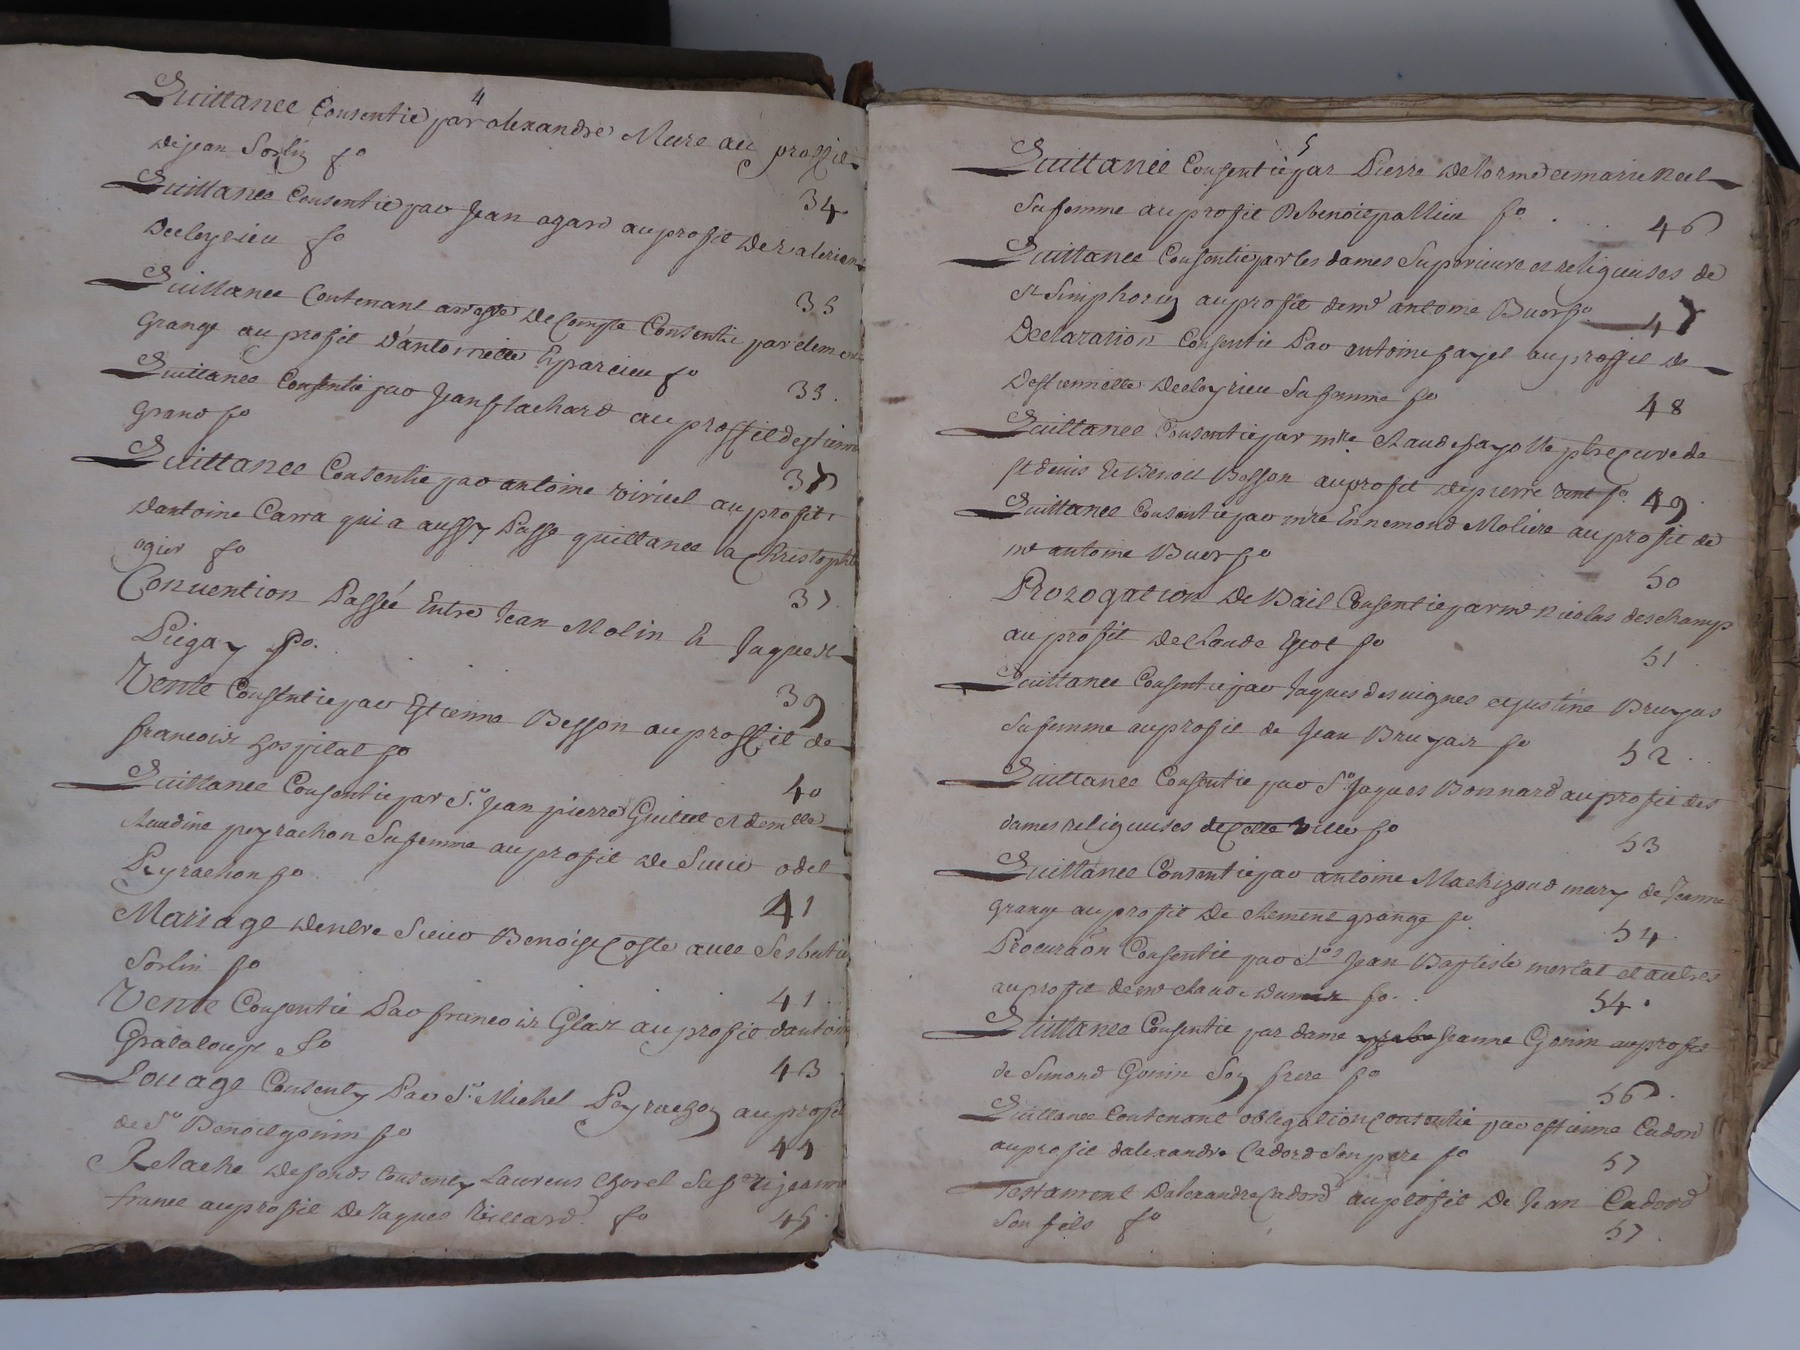 4
Quittance Consentie par alexandre Mure au proffit
de jean Sorlin fo
34
Quittance Consentie par Jean ogard au profit de valerien
Decleyrieu fo
35
Quittance Contenant arreste de Compte Consentie par clem
Grange au profit d'antoinette Eparcieu fo
35.
Quittance Consentie par Jean flachard au proffit destienne
Grand fo
37
Quittance Consentie par antoine viricel au profit
dantoine Carra qui a aussy Passe quittance a Christophle
ogier fo
37.
Convention Passée Entre Jean Molin Et Jaques
Pigay fo.
39
Vente Consentie par Estienne Besson au proffit de
francois hospital fo
40
Quittance Consentie par Sr. Jean pierre et demlle
Claudine peyrachon Sa femme au profit de Sieur odet
Peyrachon fo
41
Mariage dentre Sieur Benoist Coste avec
Sorlin fo
41.
Vente Consentie Par francois Glas au profit dantoin
Grataloup fo
43
Louage Consenty Par Sr. Michel Peyrachon au profit
de Sr Benoit gonin fo
44
Relache de fonds Consenty Laurens Chorel Sa fe et jeanne
france au profit De Jaques Villard. fo 45.
5
Quittance Consentie par Pierre Delorme et marie
Sa femme au profit De benoit pallieu fo.
46
Quittance Consentie par les dames Superieure et religieuses de
St Simphorien au profit de mr antoine Buer fo
47
Declaration Consentie Par antoine fayet au proffit de
Destiennette Decleyrieu Sa femme fo
48
Quittance Consentie par mre. Claude fayolle ptre Cure de
St denis Et Benoit Besson au profit de pierre fo. 49.
Quittance Consentie par mre Ennemond Moliere au profit de
mr antoine Buer fo
50
Prorogation de Bail Consentie par mr nicolas deschamp
au profit de Claude fo
51.
Quittance Consentie par Jaques desvignes et justine Bruyas
Sa femme au profit de Jean Bruyas fo
52.
Quittance Consentie par Sr. Jaques Bonnard au profit des
dames religieuses de Cette Ville fo
53
Quittance Consentie par antoine Machizaud mary de Jeanne
Grange au profit De Clement grange fo.
54.
Procuraon Consentie par Jean Baptiste mortal et autres
au profit de mr Claude Dumas fo.
54.
Quittance Consentie par dame Jeanne Gonin au profit
de Simond Gonin Son frere fo
56.
Quittance Contenant obligation Consentie par estienne Cadord
au profit dalexandre Cadord Son pere fo
57
Testament Dalexandre Cadord au profit De Jean Cadord
Son fils fo
57.